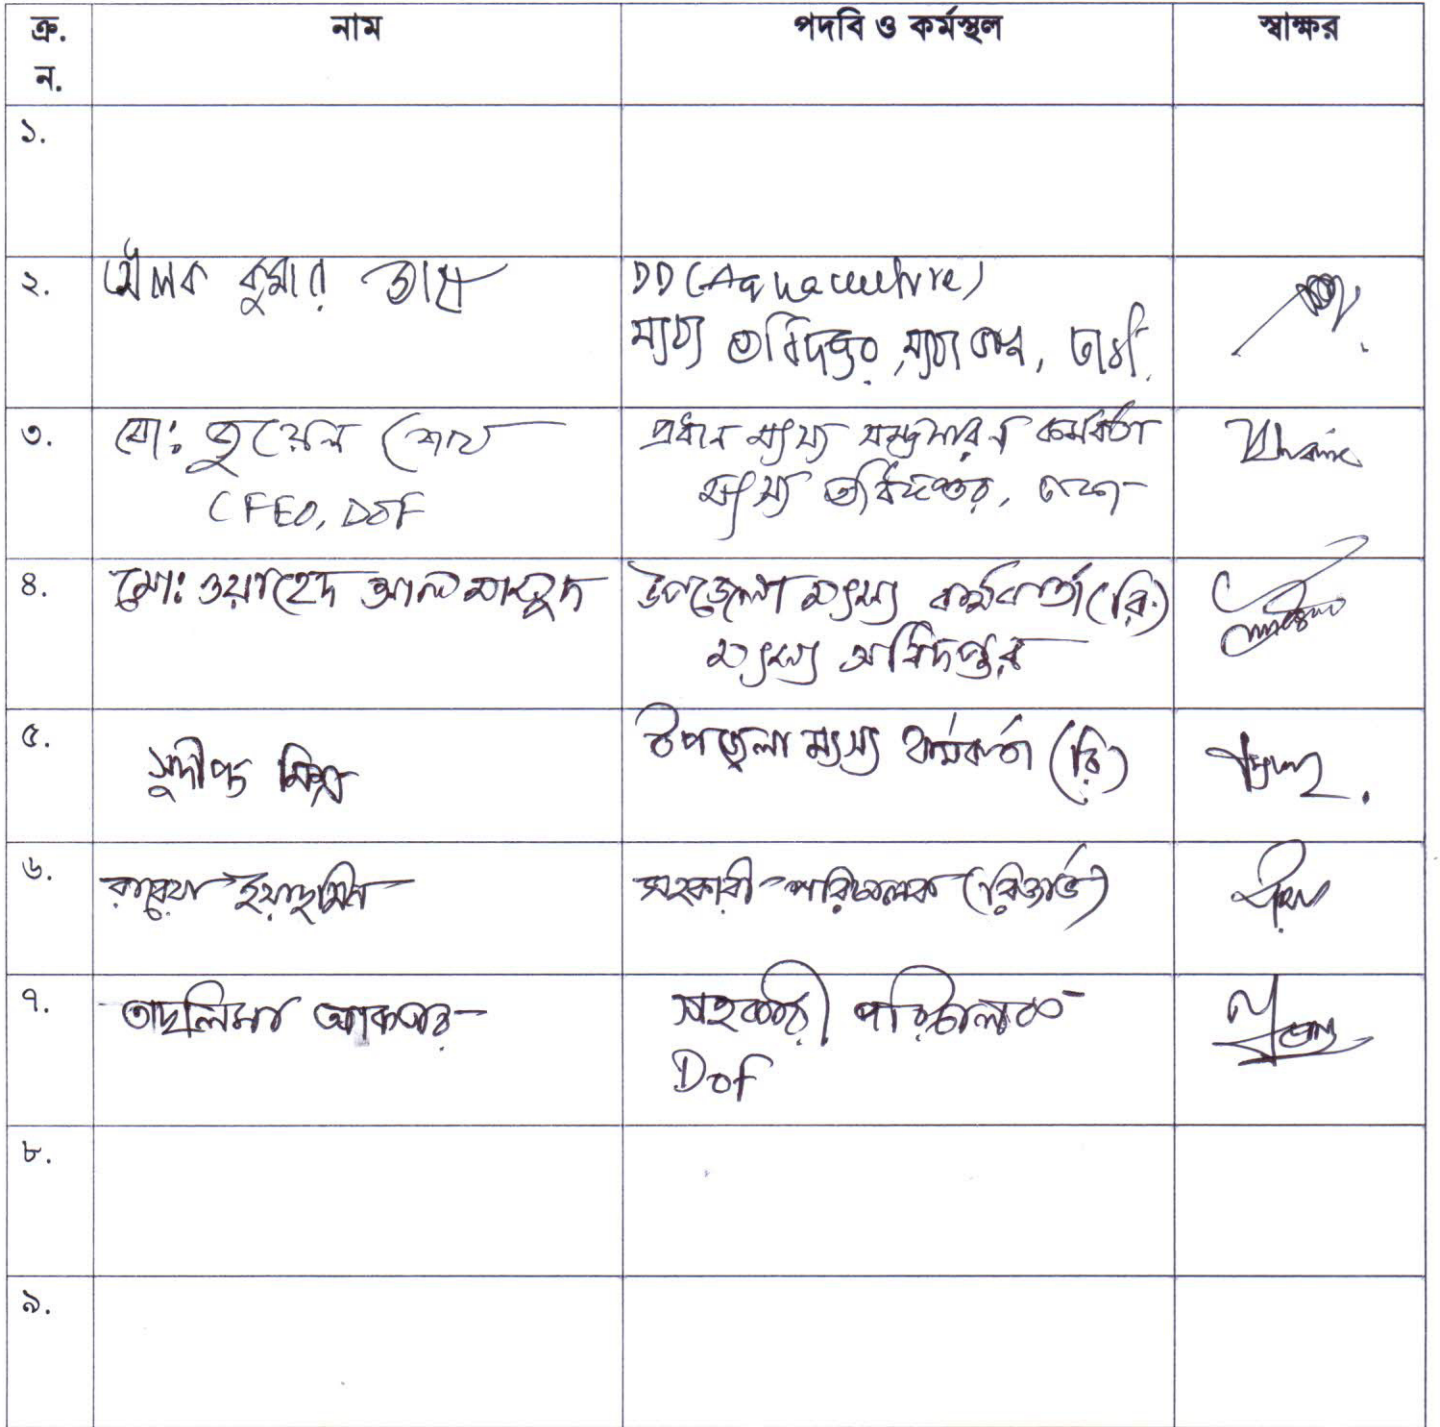 ক্র. ন. নাম পদবি ও কর্মস্থল স্বাক্ষর
১.
২. কুমার DD (Aquaculture)
মৎস্য অধিদপ্তর, মৎস্য ভবন, ঢাকা
৩. মোঃ জুয়েল শেখ প্রধান মৎস্য সম্প্রসারণ কর্মকর্তা
CFEO, DOF মৎস্য অধিদপ্তর, ঢাকা
৪. মোঃ ওয়াহেদ আল মাসুদ উপজেলা মৎস্য কর্মকর্তা (রি:)
মৎস্য অধিদপ্তর
৫. সুদীপ্ত মিশ্র উপজেলা মৎস্য কর্মকর্তা (রি)
৬. ইয়াছমিন সহকারী পরিচালক (রিজার্ভ)
৭. তাছলিমা আকতার সহকারী পরিচালক
DoF
৮.
৯.